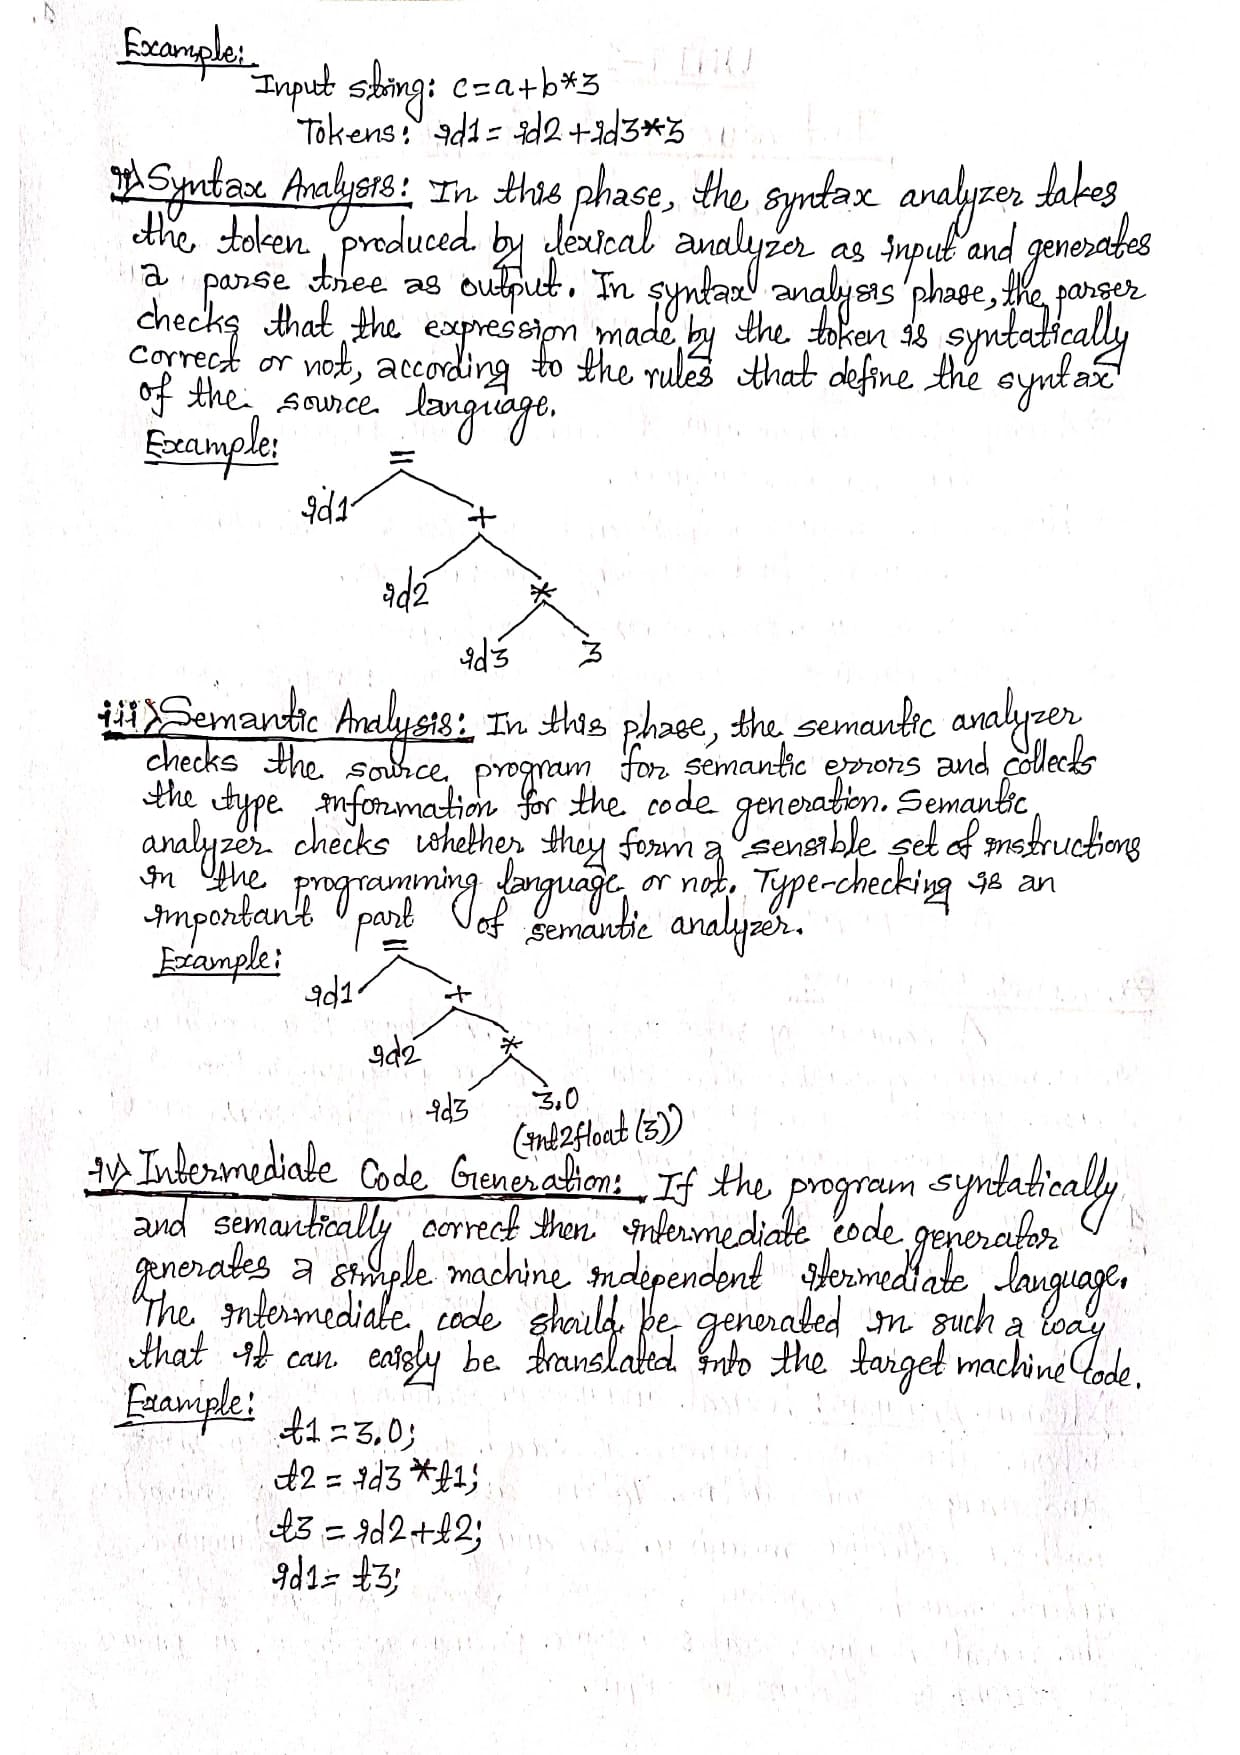 Example:
Input string: c=a+b*3
Tokens: id1 = id2 +id3*3
ii) Syntax Analysis: In this phase, the syntax analyzer takes
the token produced by lexical analyzer as input and generates
a parse tree as output. In syntax analysis phase, the parser
checks that the expression made by the token is syntatically
correct or not, according to the rules that define the syntax
of the source language.
Example:
=
id1
+
id2
*
id3 3
iii) Semantic Analysis: In this phase, the semantic analyzer
checks the source program for semantic errors and collects
the type information for the code generation. Semantic
analyzer checks whether they form a sensible set of instructions
in the programming language or not. Type-checking is an
important part of semantic analyzer.
Example:
=
id1
+
id2
*
id3 3.0
(int2float (3))
iv) Intermediate Code Generation: If the program syntatically
and semantically correct then intermediate code generator
generates a simple machine independent itermediate language.
The intermediate code should be generated in such a way
that it can eaisly be translated into the target machine code.
Example:
t1 = 3.0;
t2 = id3 * t1;
t3 = id2+t2;
id1= t3;